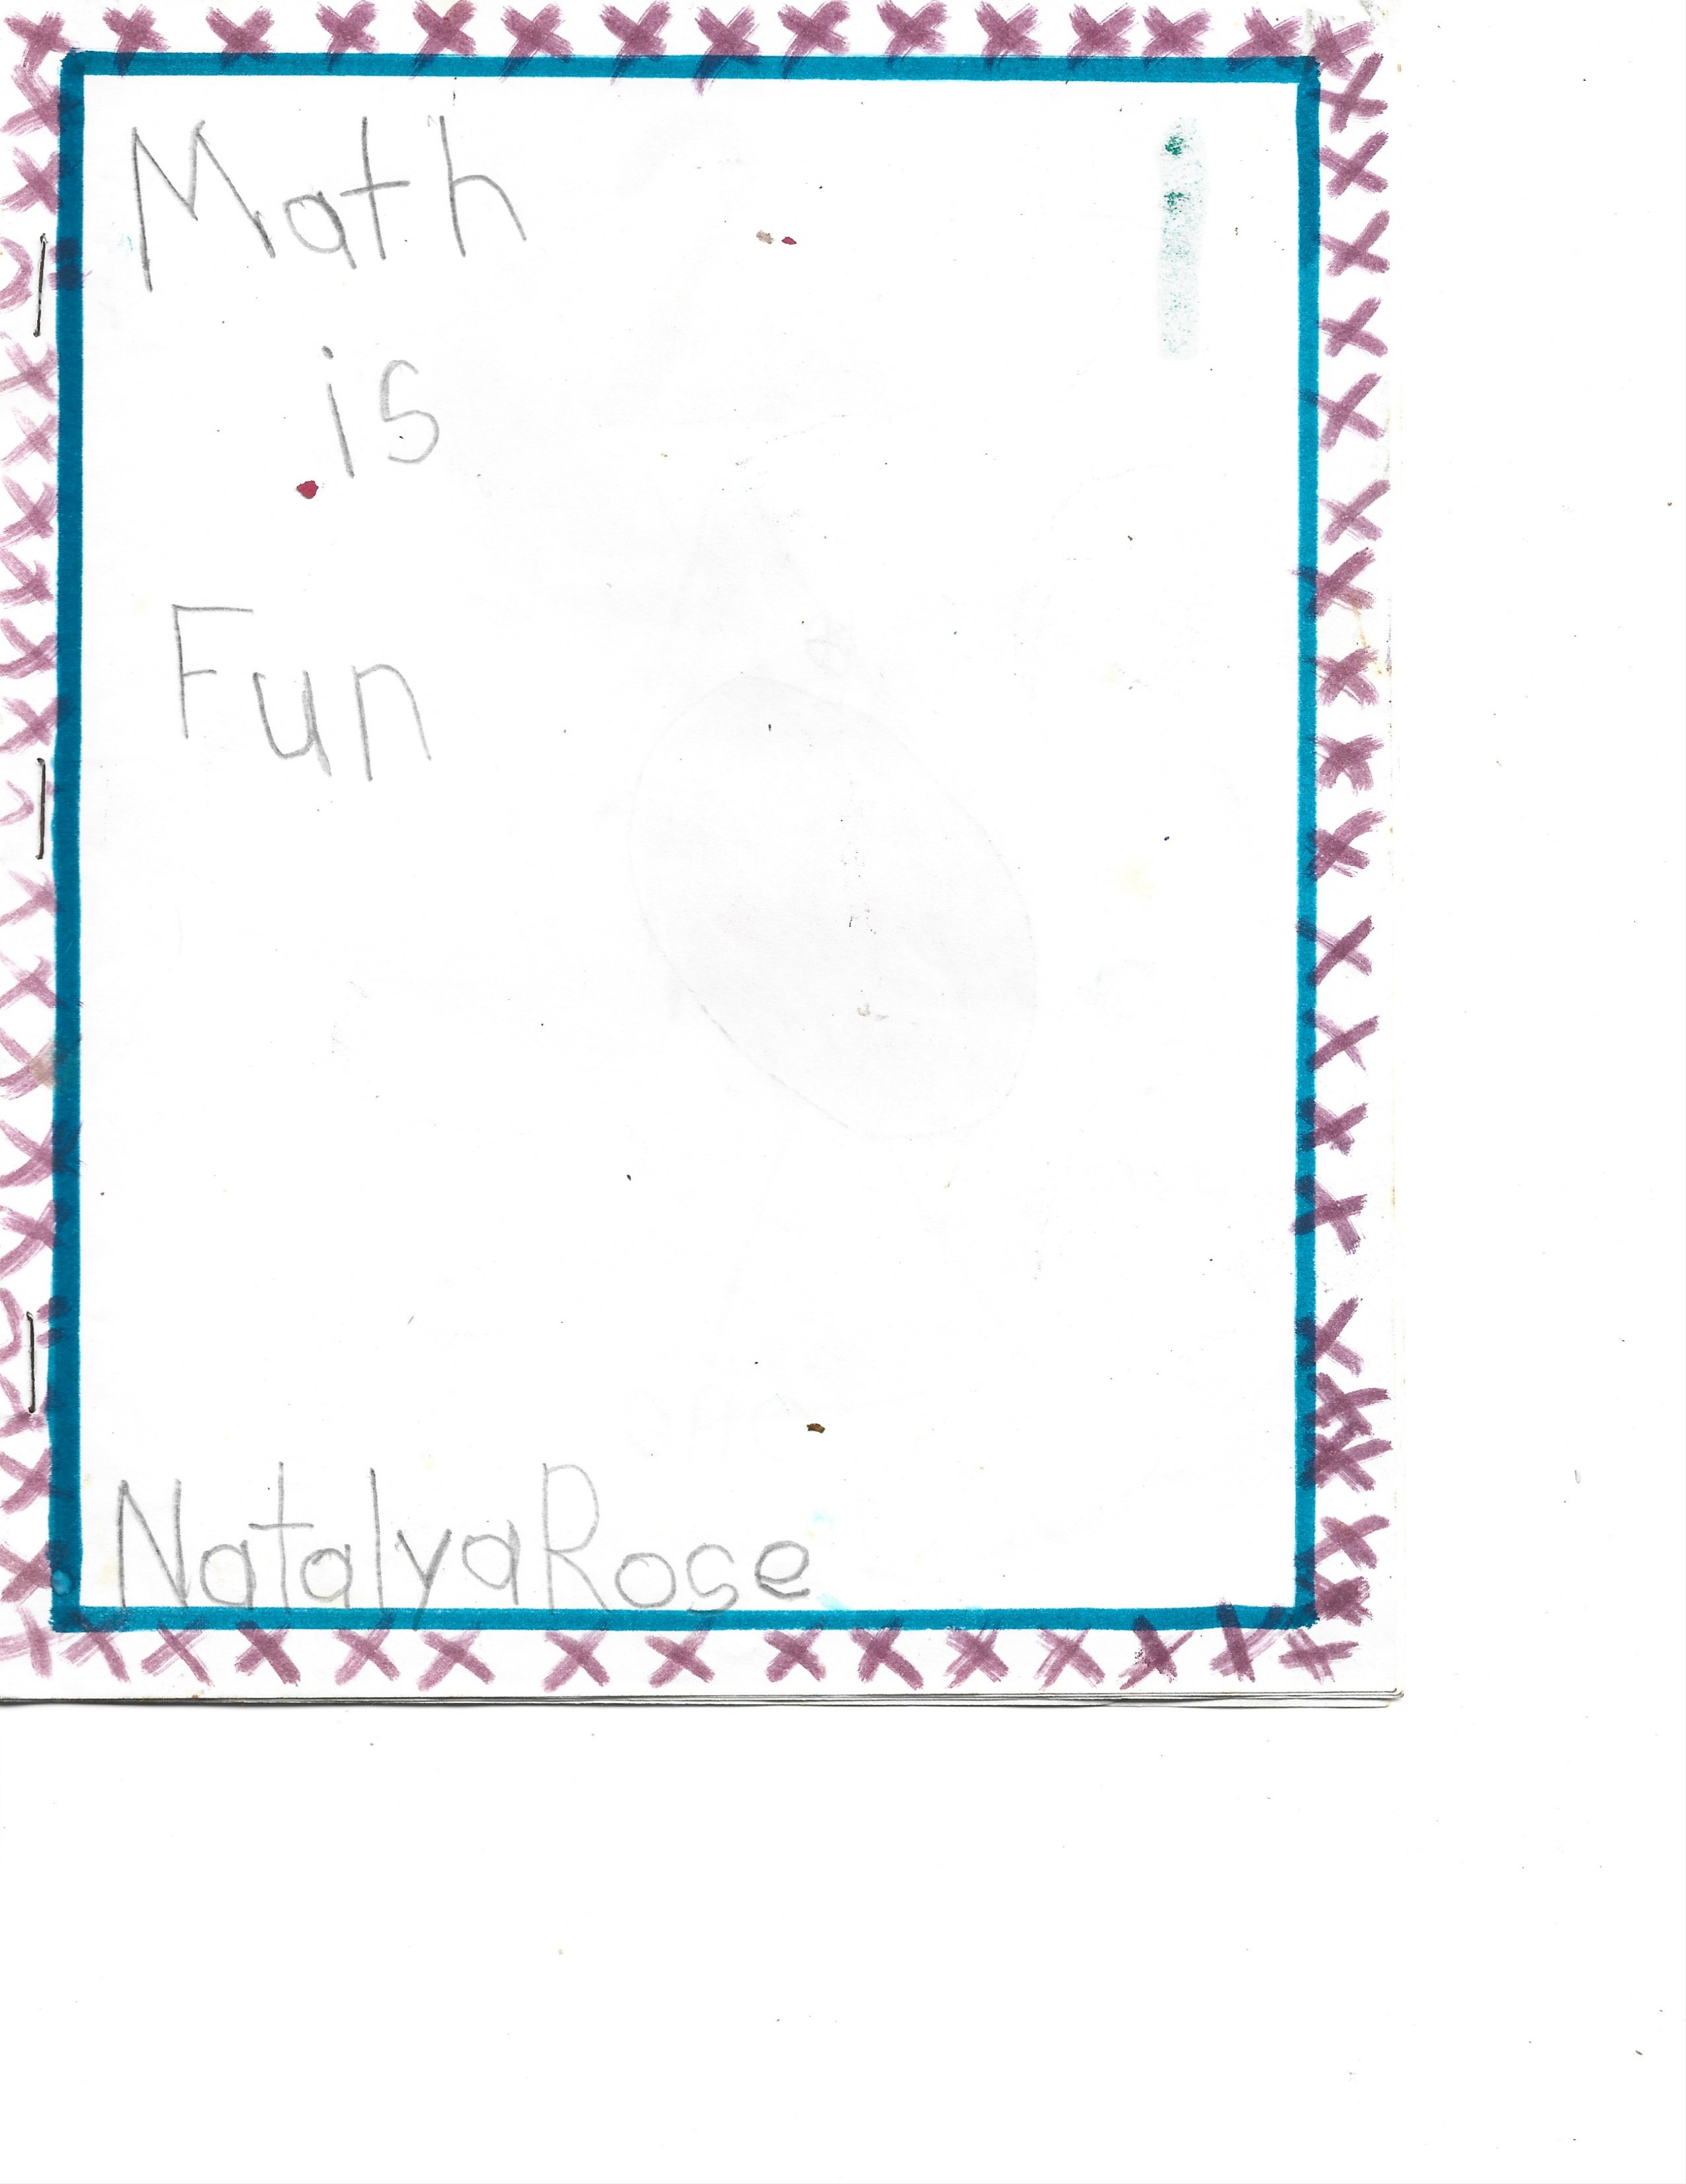 Math
is
Fun
NatalyaRose